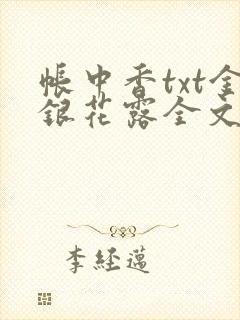 帳中香txt金
銀花露全文
李經邁